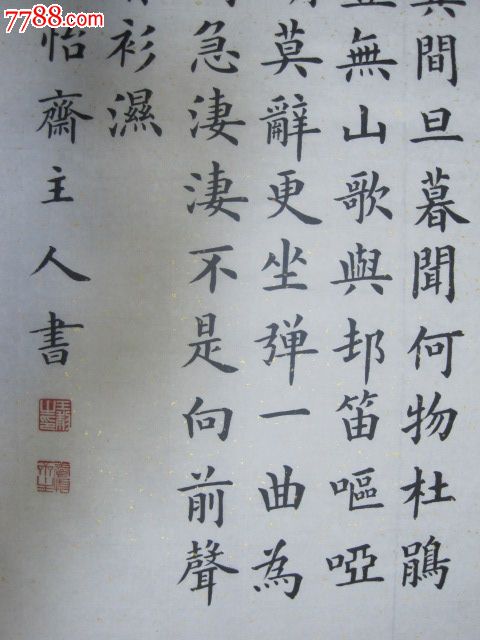 7788.com
其間旦暮聞何物杜鵑
無山歌與邨笛嘔啞
莫辭更坐弹一曲為
急淒淒不是向前聲
衫濕
怡齋主人書